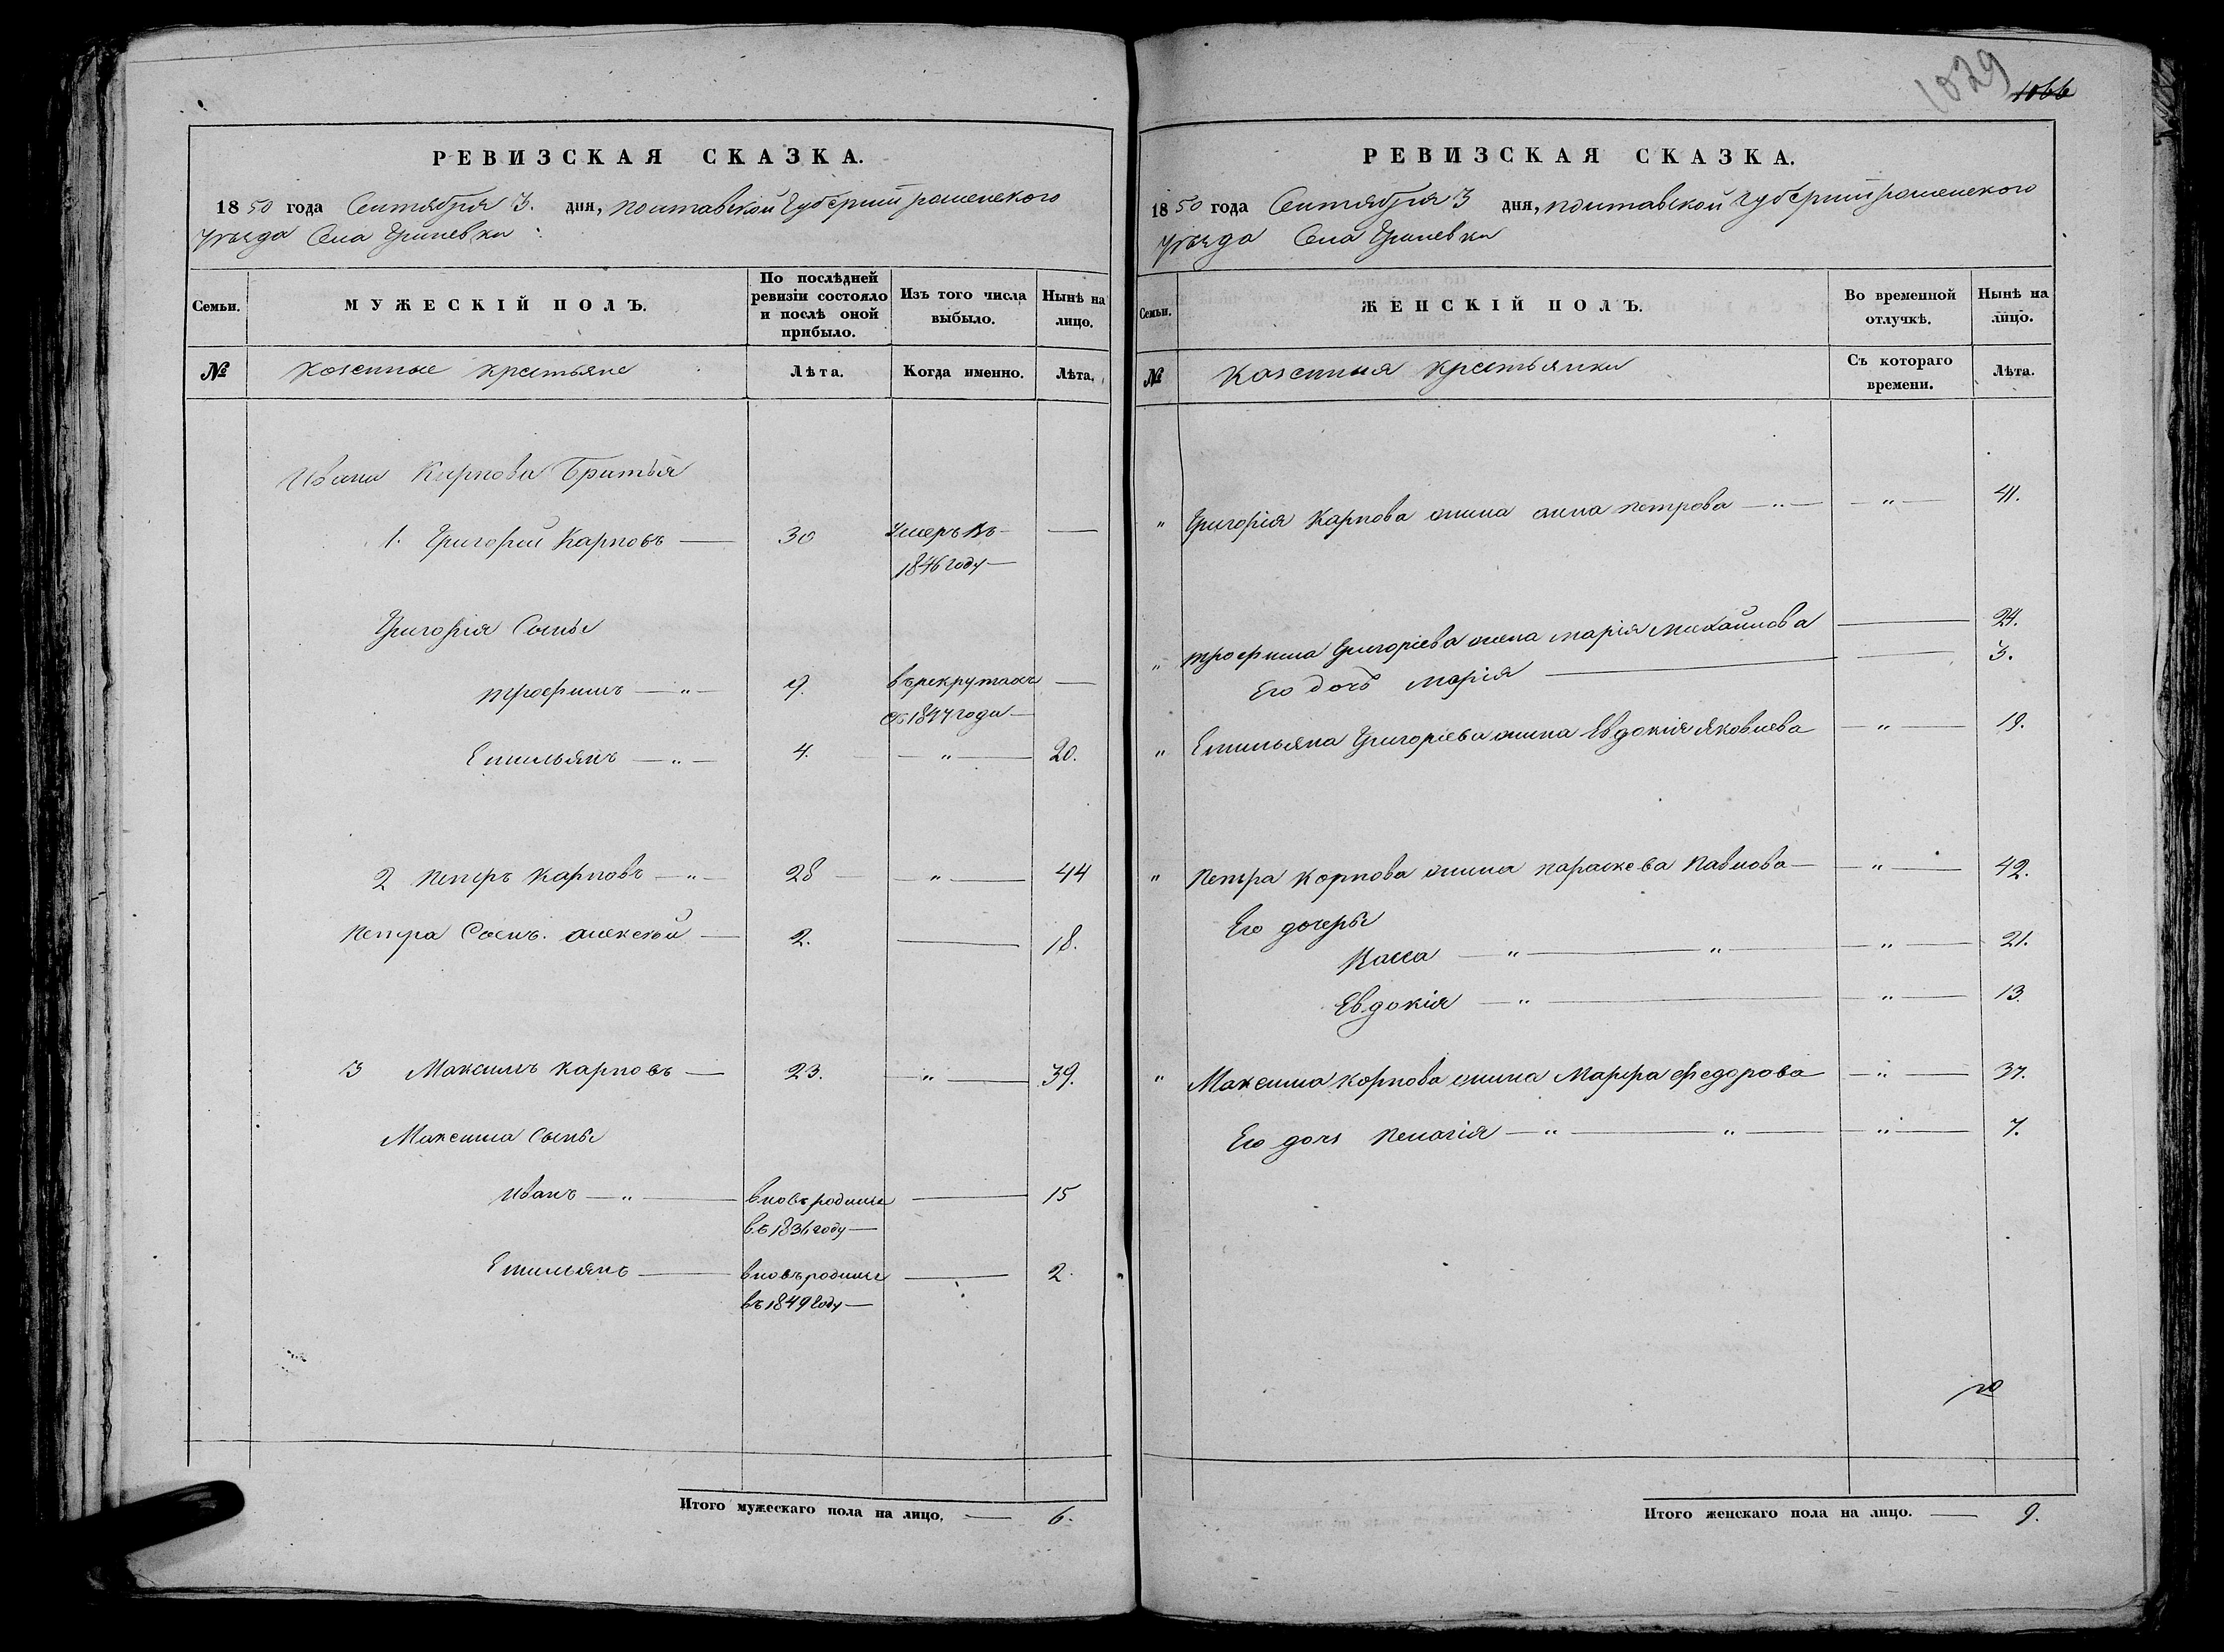 РЕВИЗСКАЯ СКАЗКА.
1850 года Сентября 3. дня, полтавской Губернии роменского
уѣзда Села Гриневки
Семьи.
МУЖЕСКІЙ ПОЛЪ.
По послѣдней ревизіи состояло и послѣ оной прибыло.
Изъ того числа выбыло.
Нынѣ на лицо.
№
Козенные крестьяне
Лѣта.
Когда именно.
Лѣта.
Ивана Карпова Братья
1. Григорій Карповъ — 30 Умеръ въ —
1846 году —
Григорія Сыны
трофимъ — „ — 9. въ рекрутахъ —
съ 1847 года —
Емильянъ — „ — 4. — „ — 20.
2 Петръ Карповъ — „ — 28 — „ — 44
Петра Сынъ. алексѣй — 2. — 18.
3 Максимъ Карповъ — 23. — „ — 39.
Максима Сыны
Иванъ — „ — вновь родился — 15
въ 1836 году —
Емильянъ — вновь родился — 2.
въ 1849 году —
Итого мужескаго пола на лицо. — 6.
1029
1066
РЕВИЗСКАЯ СКАЗКА.
1850 года Сентября 3 дня, полтавской Губернии роменского
уѣзда Села Гриневки
Семьи.
ЖЕНСКІЙ ПОЛЪ.
Во временной отлучкѣ.
Нынѣ на лицо.
№
Козенныя крестьянки
Съ котораго времени.
Лѣта.
„ Григорія Карпова жина анна петрова — „ — — „ — 41.
„ трофима Григоріева жена марія михайлова — 24.
Его дочь марія — 3.
„ Емильяна Григоріева жина Евдокія Яковлева — „ — 19.
„ Петра Карпова жина параскева Павлова — — „ — 42.
Его дочеры
Васса — „ — „ — „ — 21.
Евдокія — „ — „ — 13.
„ Максима Карпова жина Марфа федорова — „ — 37.
Его дочь Пелагія — „ — „ — „ — 7.
Итого женскаго пола на лицо. — 9.